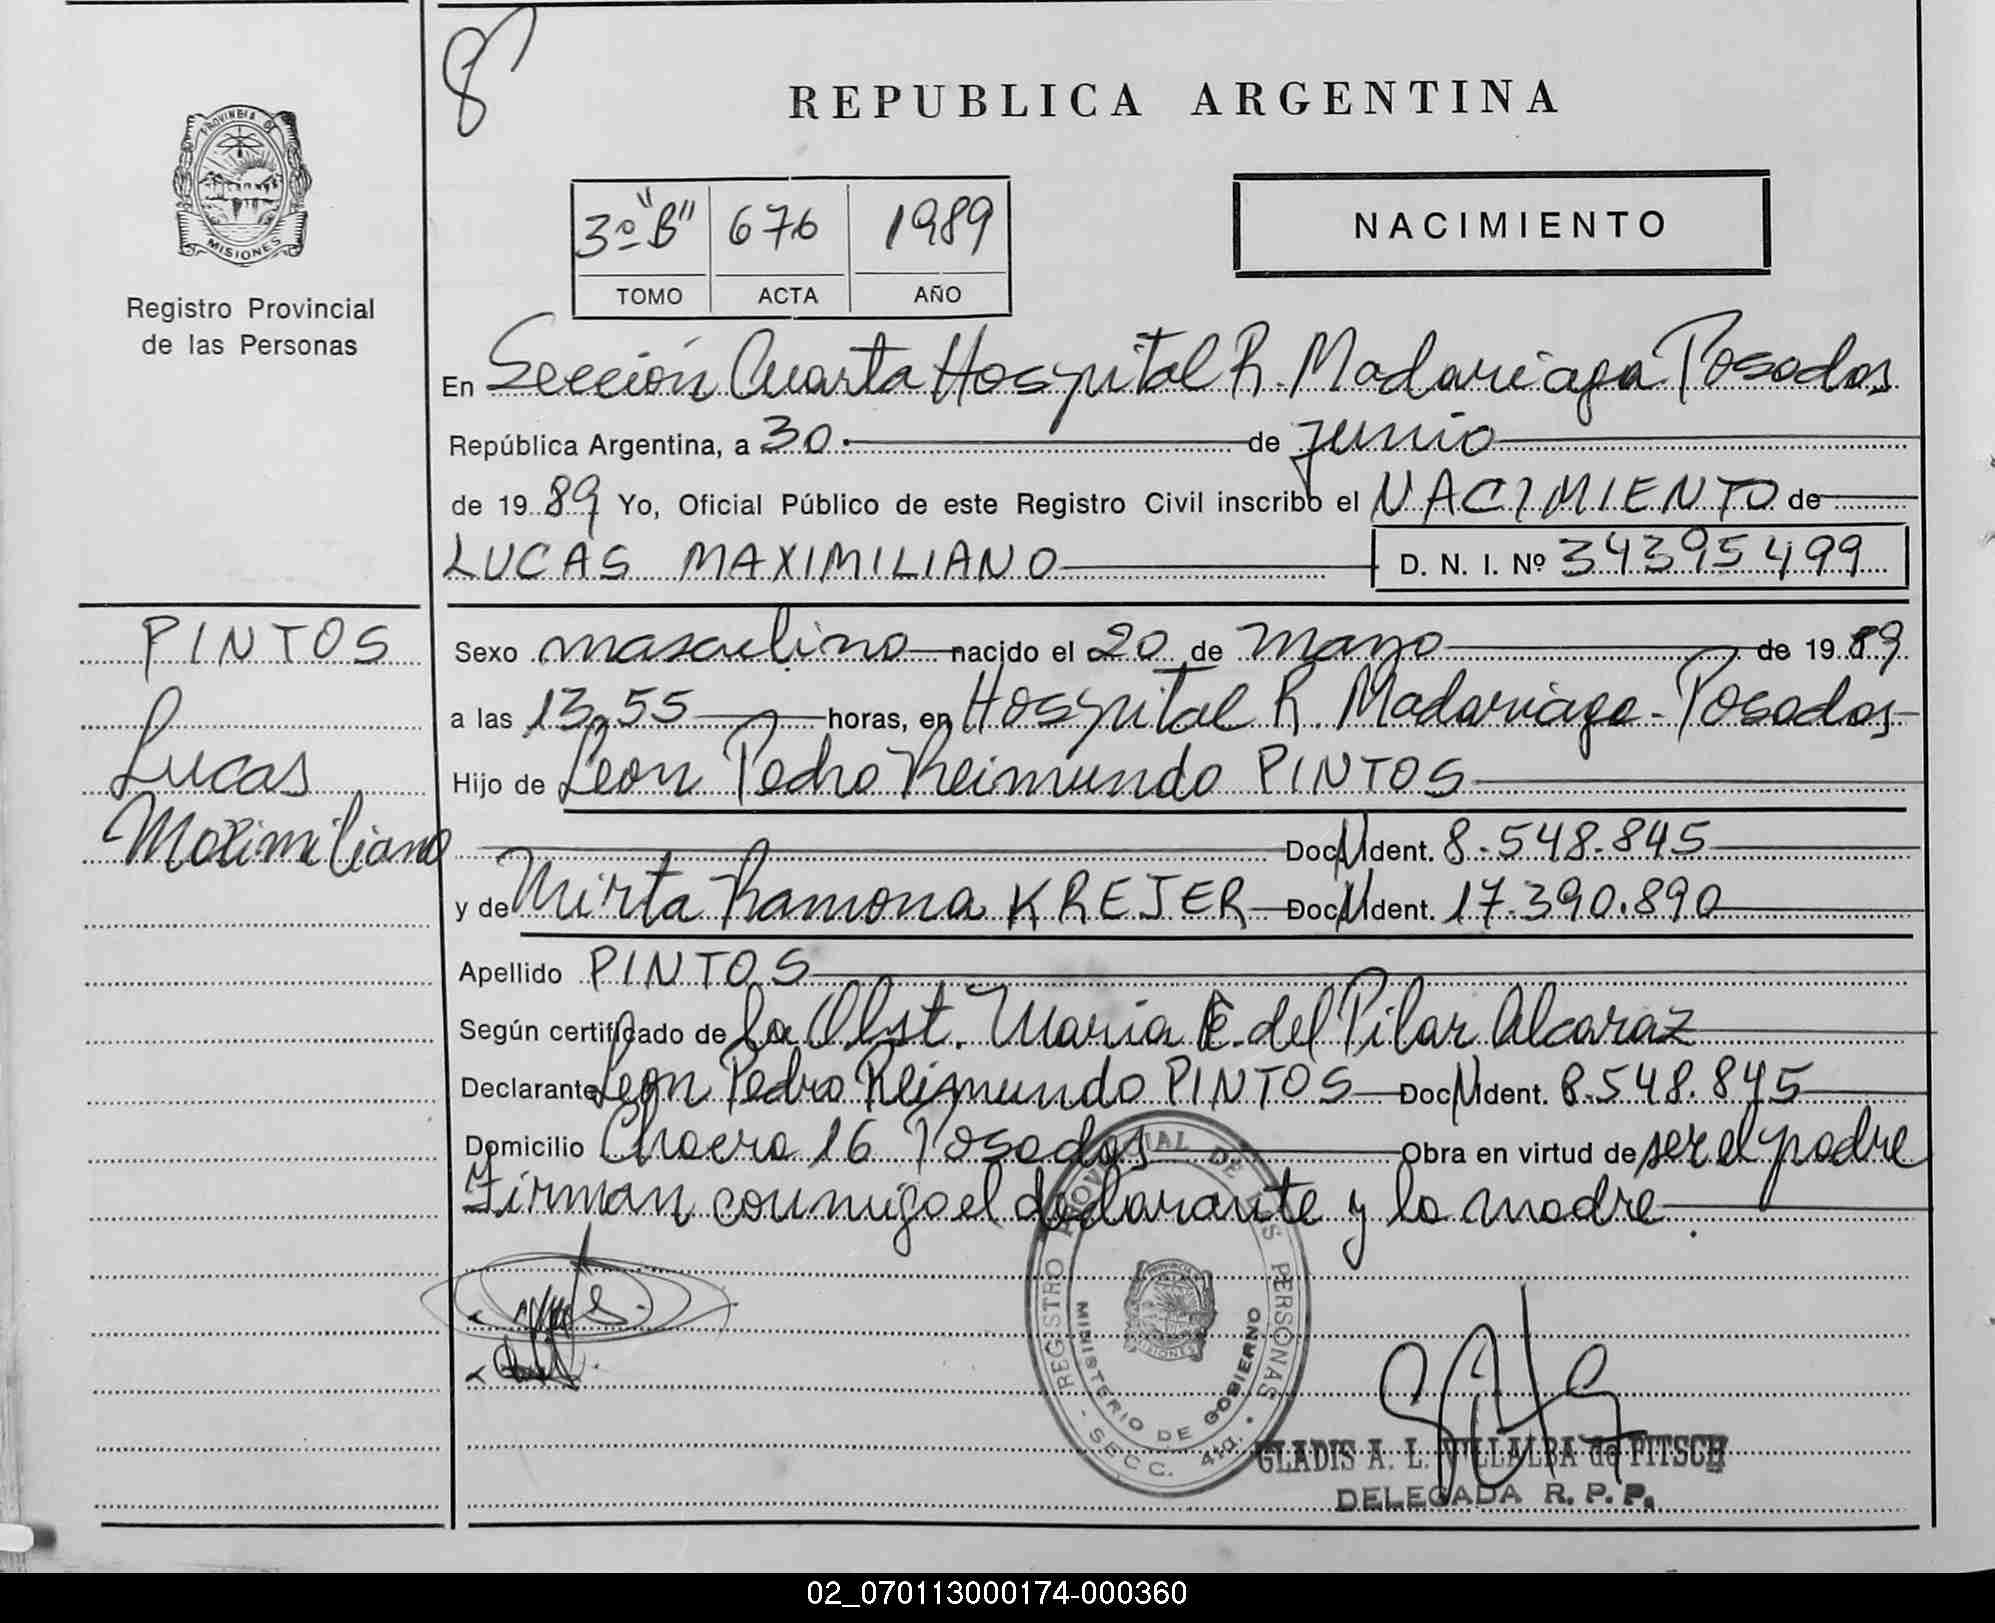 8
REPUBLICA ARGENTINA
PROVINCIA DE
MISIONES
Registro Provincial
de las Personas
3º "B" 676 1989
TOMO ACTA AÑO
NACIMIENTO
En Sección Cuarta Hospital R. Madariaga Posadas
República Argentina, a 30 de junio
de 1989 Yo, Oficial Público de este Registro Civil inscribo el NACIMIENTO de
LUCAS MAXIMILIANO D. N. I. Nº 34395499
PINTOS
Lucas
Maximiliano
Sexo masculino nacido el 20 de mayo de 1989
a las 13,55 horas, en Hospital R. Madariaga - Posadas
Hijo de Leon Pedro Reimundo PINTOS
Doc. N Ident. 8.548.845
y de Mirta Ramona KREJER Doc. N Ident. 17.390.890
Apellido PINTOS
Según certificado de la Obst. Maria E. del Pilar Alcaraz
Declarante Leon Pedro Reimundo PINTOS Doc. N Ident. 8.548.845
Domicilio Chacra 16 Posadas Obra en virtud de ser el padre
Firman conmigo el declarante y la madre
REGISTRO PROVINCIAL DE LAS PERSONAS
MINISTERIO DE GOBIERNO
- SECC. 4ta. -
GLADIS A. L. VILLALBA de PITSCH
DELEGADA R. P. P.
02_070113000174-000360